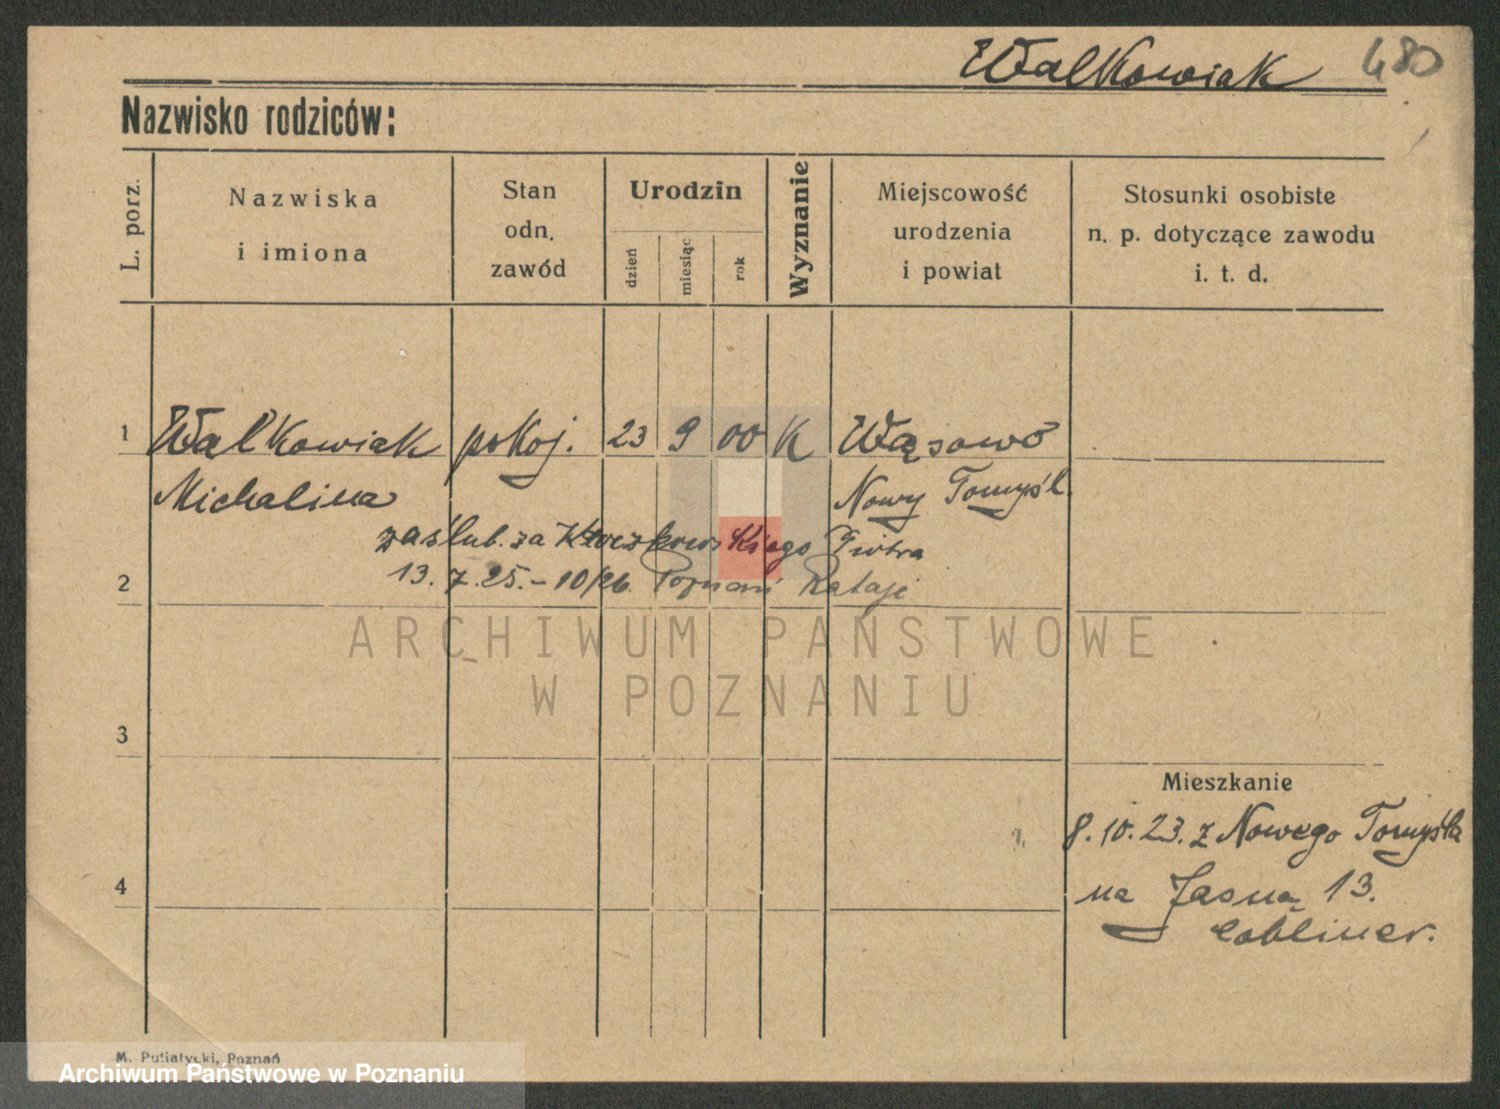 Walkowiak 480
Nazwisko rodziców:
L. porz.
Nazwiska
i imiona
Stan
odn.
zawód
Urodzin
dzień
miesiąc
rok
Wyznanie
Miejscowość
urodzenia
i powiat
Stosunki osobiste
n. p. dotyczące zawodu
i. t. d.
1 Walkowiak pokoj. 23 9 00 K Wąsowo
Michalina Nowy Tomyśl.
zaślub. za Piotra
2 13. 7. 25. - 10/26. Poznań Rataje
ARCHIWUM PAŃSTWOWE
W POZNANIU
3
Mieszkanie
8. 10. 23. z Nowego Tomyśla
4 na Jasną 13.
M. Putiatycki, Poznań
Archiwum Państwowe w Poznaniu